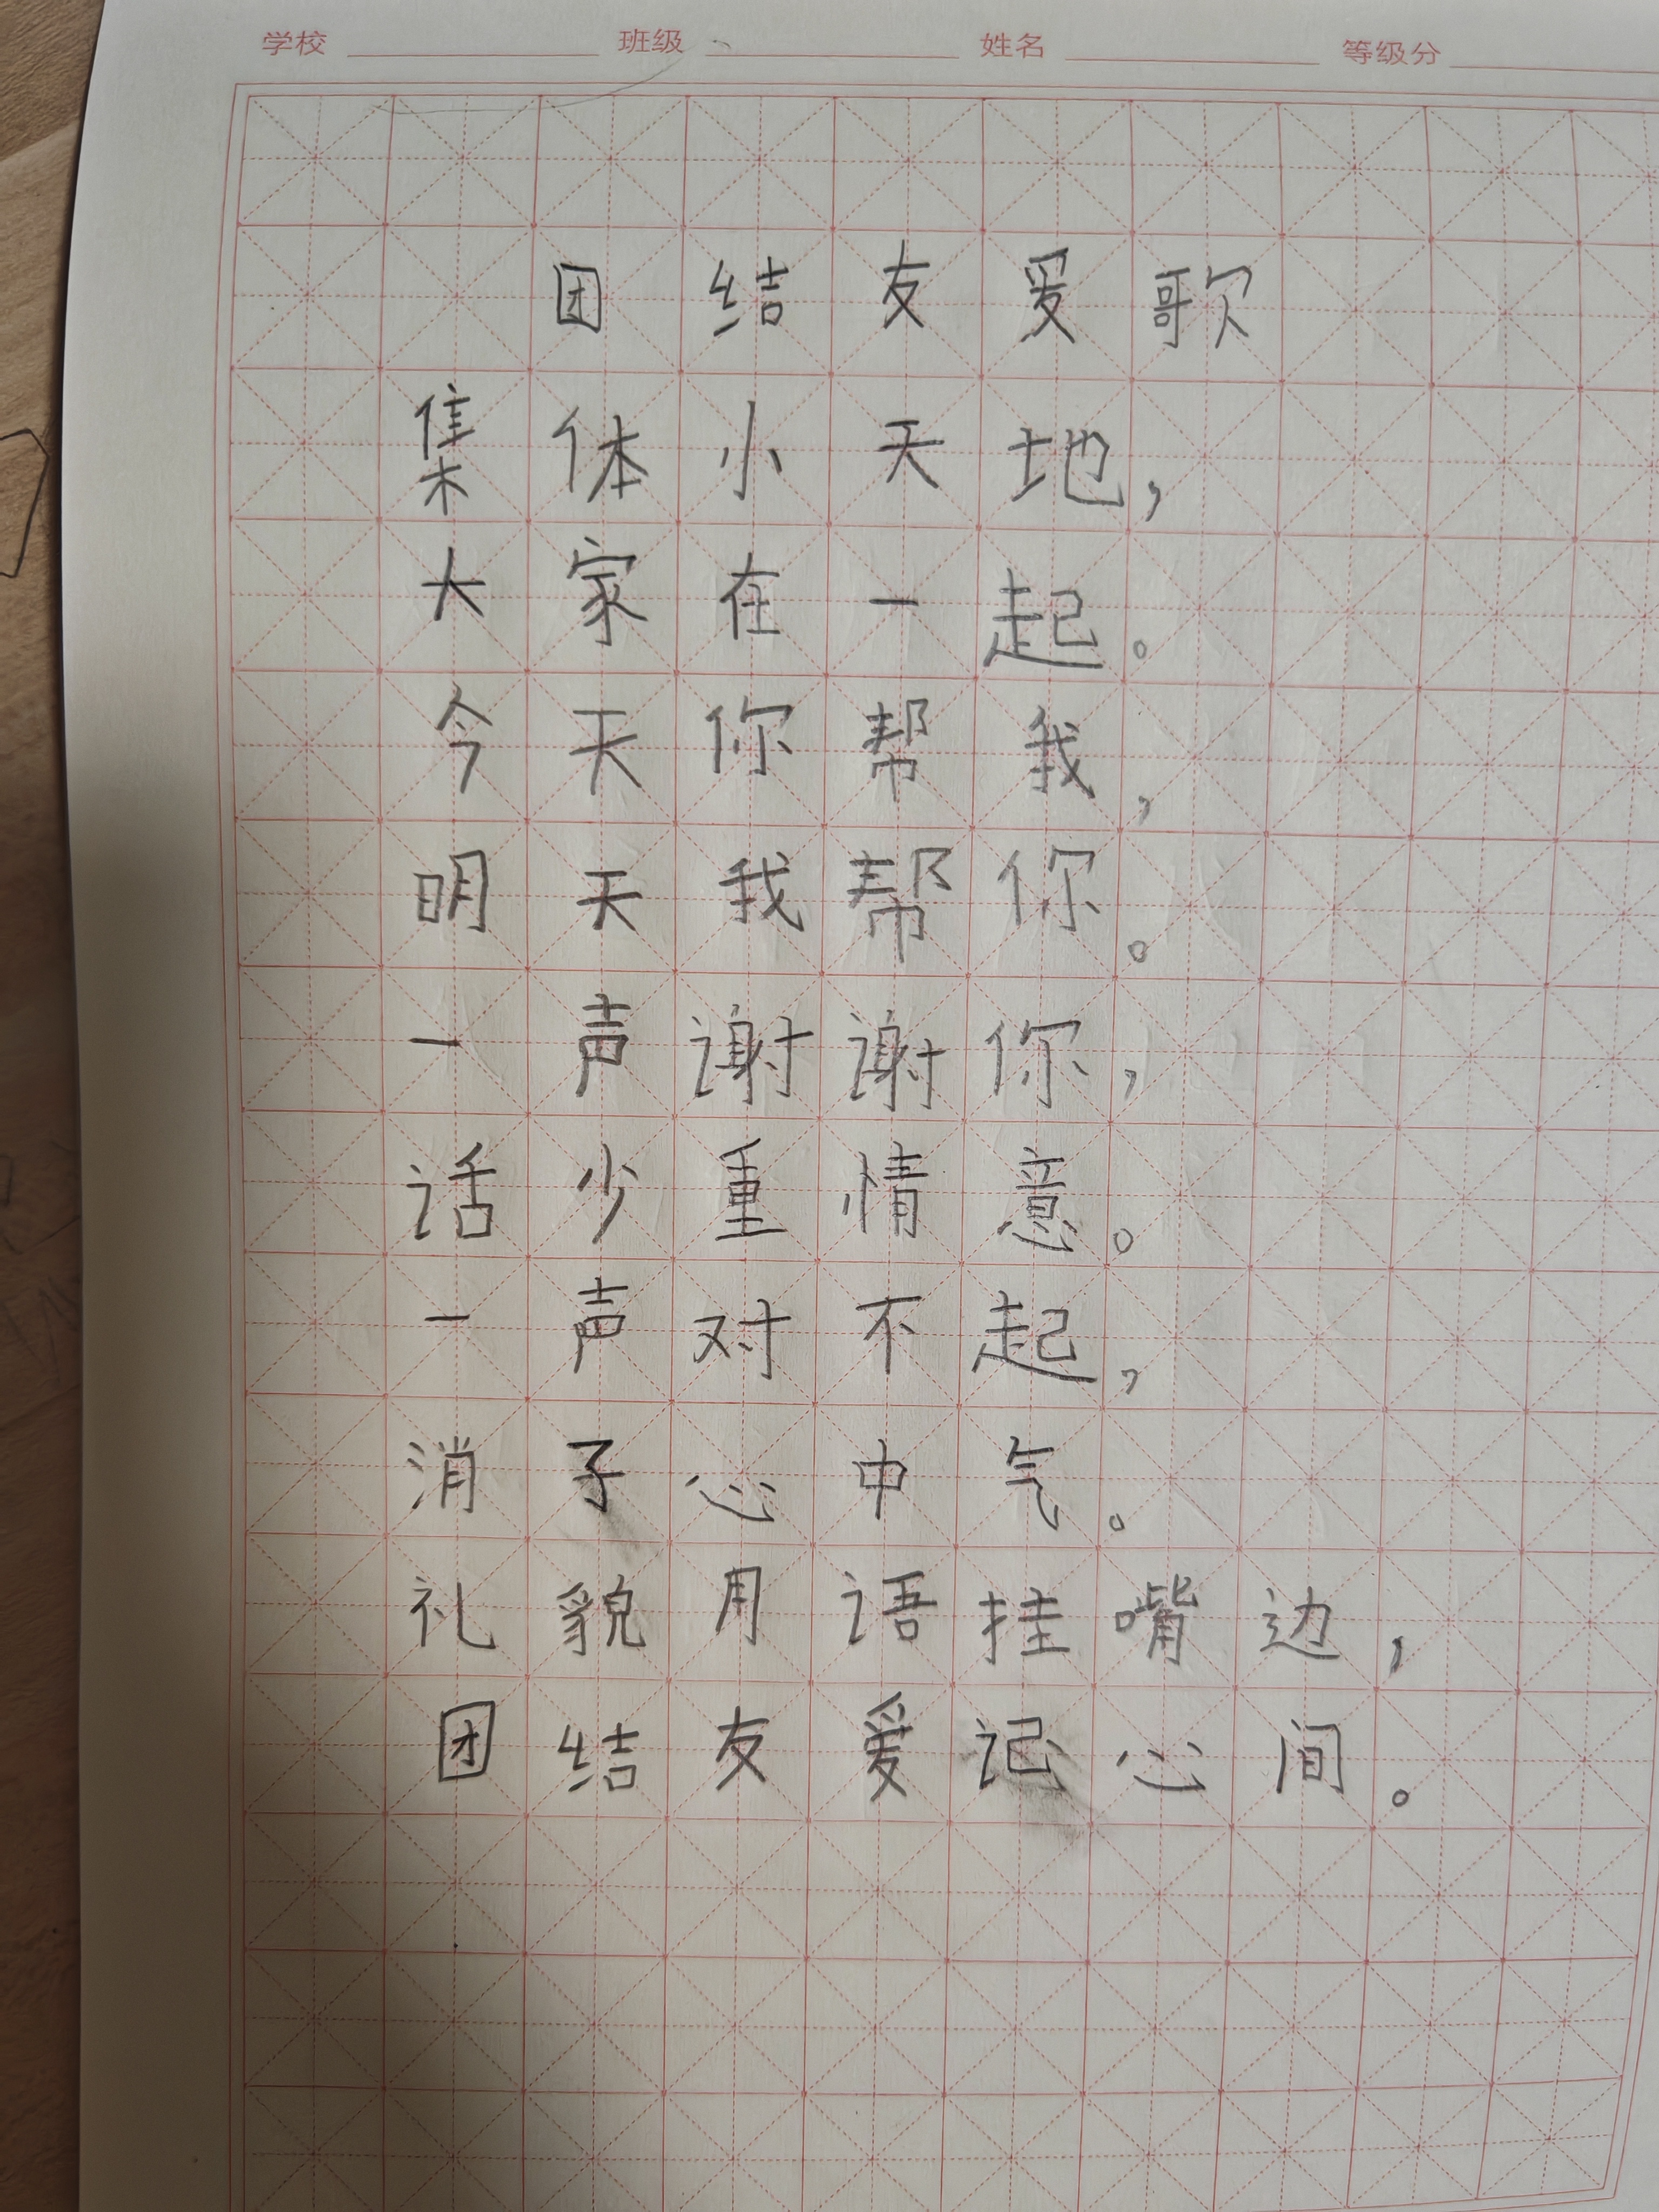 学校 班级 姓名 等级分
团结友爱歌
集体小天地，
大家在一起。
今天你帮我，
明天我帮你。
一声谢谢你，
话少重情意。
一声对不起，
消子心中气。
礼貌月语挂嘴边，
团结友爱记心间。